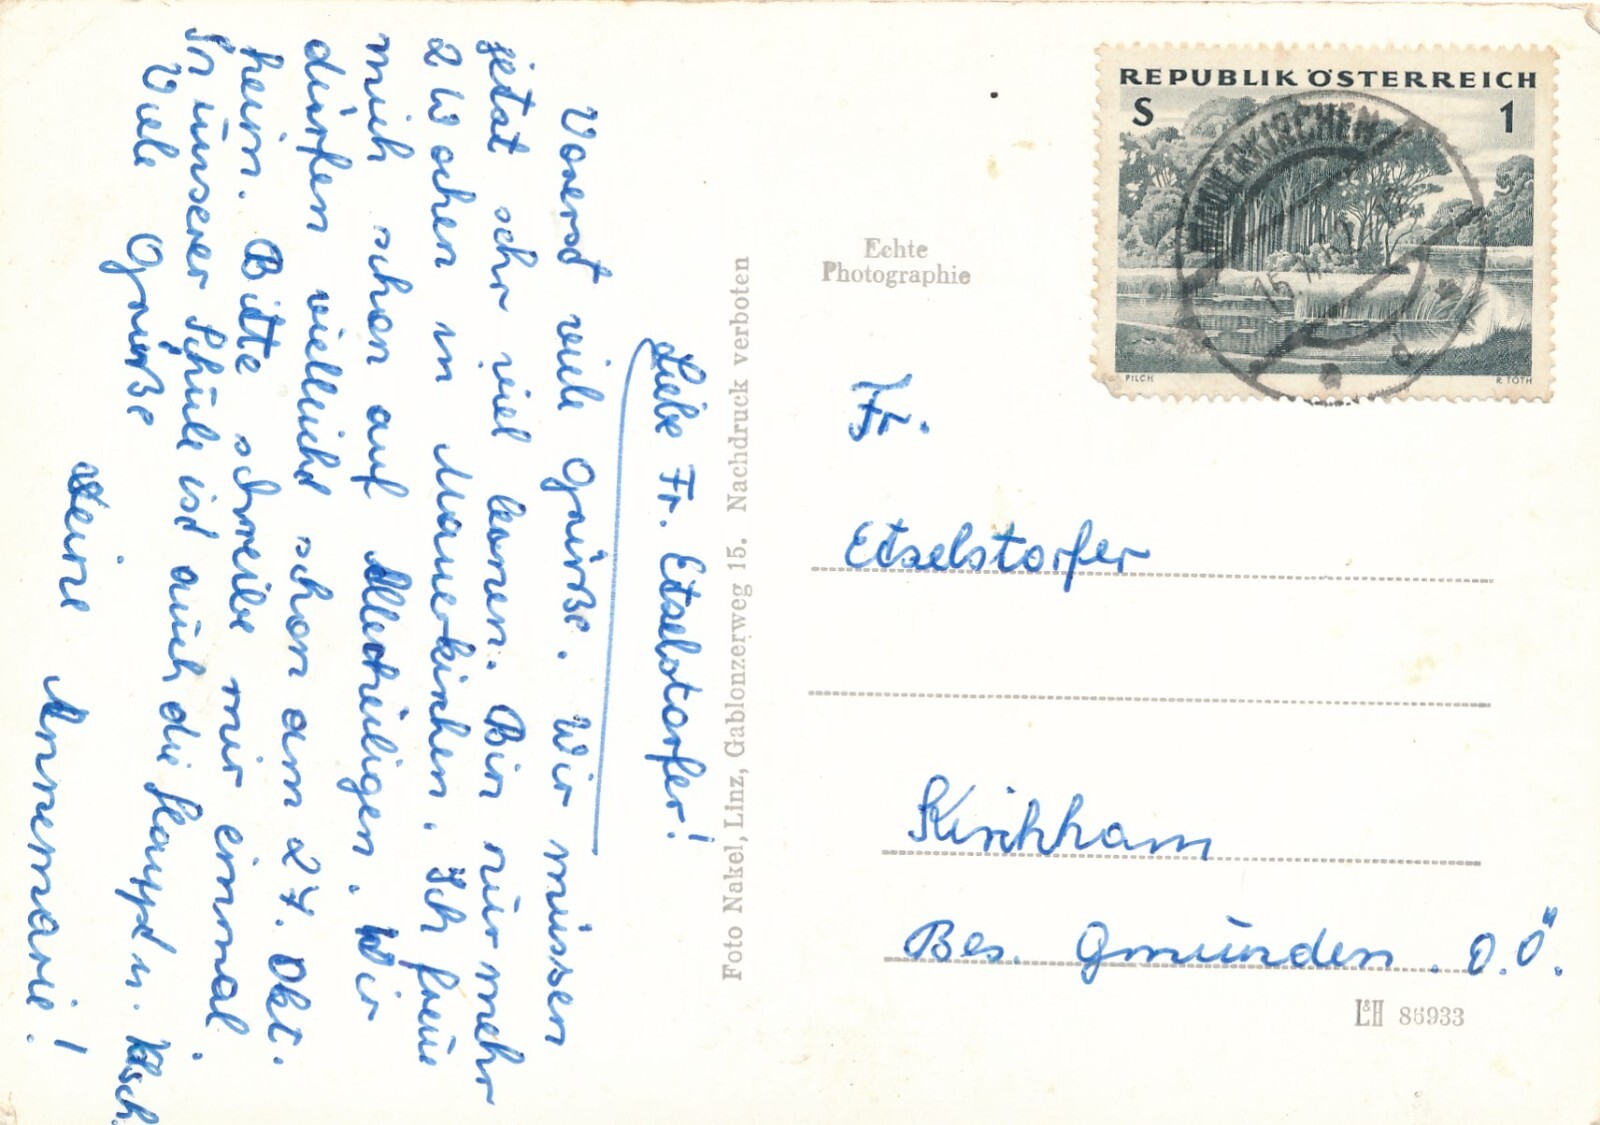 Liebe Fr. Etzelstorfer!
Vorerst viele Grüße. Wir müssen
jetzt sehr viel lernen. Bin nür mehr
2 Wochen in Mauerkirchen. Ich freue
mich schon auf Allerheiligen. Wir
dürfen vielleicht schon am 27. Okt.
heim. Bitte schreibe mir einmal.
In ünserer Schule ist auch die
Viele Grüße
Deine Annemarie!
Foto Nakel, Linz, Gablonzerweg 15. Nachdruck verboten
Echte
Photographie
REPUBLIK ÖSTERREICH
S 1
MAUERKIRCHEN
PILCH R. TOTH
Fr.
Etzelstorfer
Kirchham
Bez. Gmünden. O.Ö.
L&H 86933